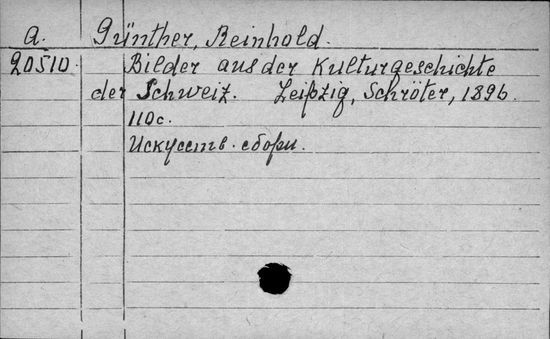 A. Günther, Reinhold.
20510. Bilder aus der Kulturgeschichte
der Schweiz. Leipzig, Schröter, 1896.
110 с.
Искусств. сборн.